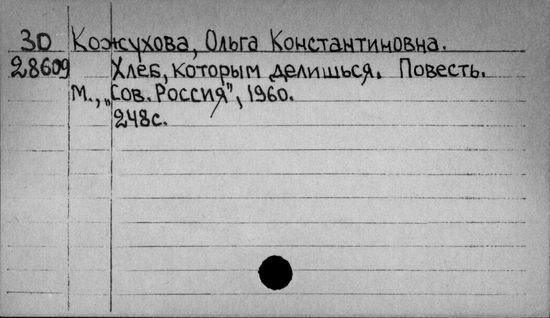 3D Кожухова, Ольга Константиновна.
28609 Хлеб, которым делишься. Повесть.
М., „Сов. Россия", 1960.
248с.